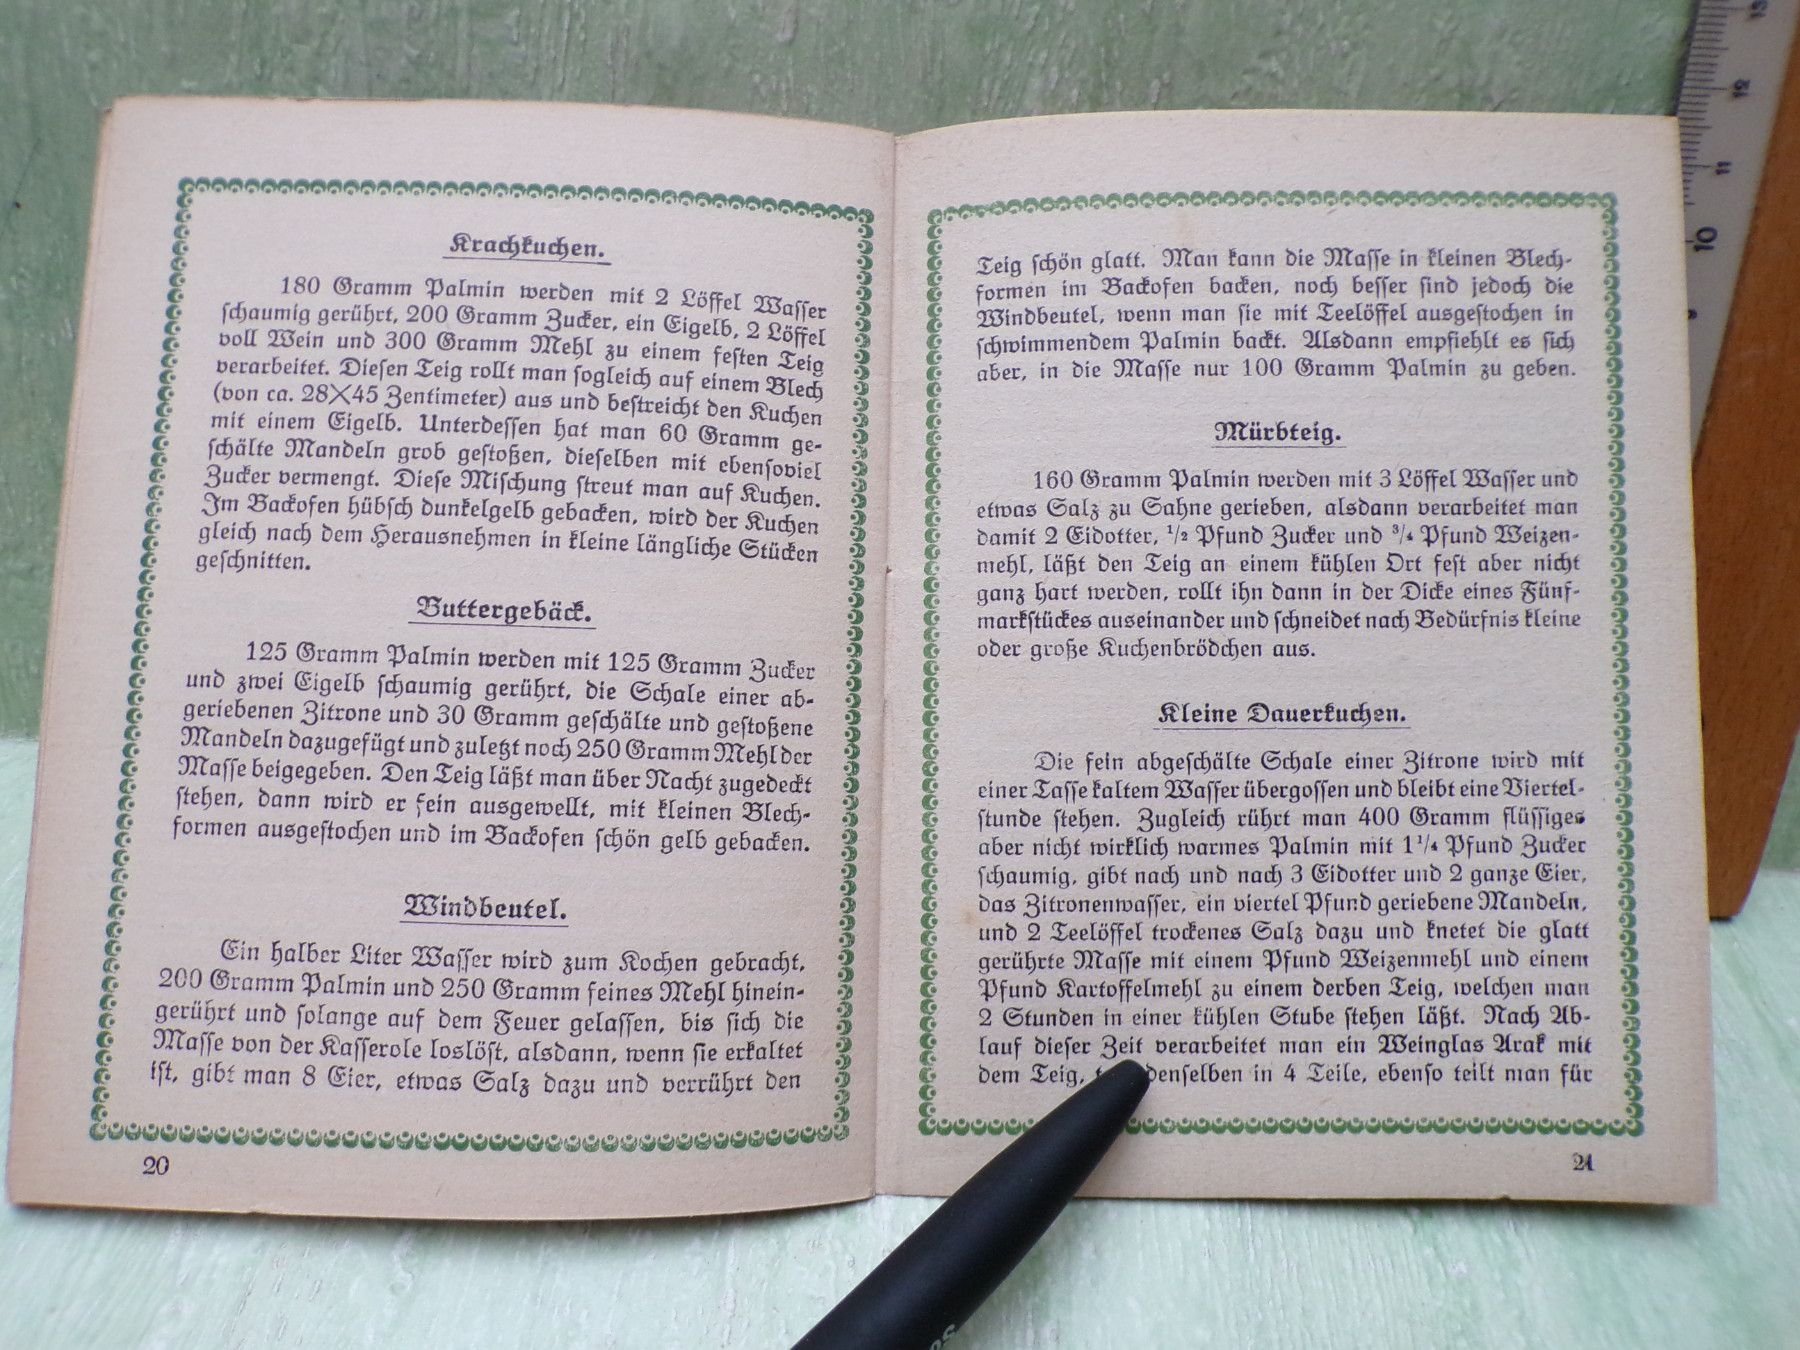 Krachkuchen.
180 Gramm Palmin werden mit 2 Löffel Wasser
schaumig gerührt, 200 Gramm Zucker, ein Eigelb, 2 Löffel
voll Wein und 300 Gramm Mehl zu einem festen Teig
verarbeitet. Diesen Teig rollt man sogleich auf einem Blech
(von ca. 28×45 Zentimeter) aus und bestreicht den Kuchen
mit einem Eigelb. Unterdessen hat man 60 Gramm ge-
schälte Mandeln grob gestoßen, dieselben mit ebensoviel
Zucker vermengt. Diese Mischung streut man auf Kuchen.
Im Backofen hübsch dunkelgelb gebacken, wird der Kuchen
gleich nach dem Herausnehmen in kleine längliche Stücken
geschnitten.
Buttergebäck.
125 Gramm Palmin werden mit 125 Gramm Zucker
und zwei Eigelb schaumig gerührt, die Schale einer ab-
geriebenen Zitrone und 30 Gramm geschälte und gestoßene
Mandeln dazugefügt und zuletzt noch 250 Gramm Mehl der
Masse beigegeben. Den Teig läßt man über Nacht zugedeckt
stehen, dann wird er fein ausgewellt, mit kleinen Blech-
formen ausgestochen und im Backofen schön gelb gebacken.
Windbeutel.
Ein halber Liter Wasser wird zum Kochen gebracht,
200 Gramm Palmin und 250 Gramm feines Mehl hinein-
gerührt und solange auf dem Feuer gelassen, bis sich die
Masse von der Kasserole loslöst, alsdann, wenn sie erkaltet
ist, gibt man 8 Eier, etwas Salz dazu und verrührt den
20
Teig schön glatt. Man kann die Masse in kleinen Blech-
formen im Backofen backen, noch besser sind jedoch die
Windbeutel, wenn man sie mit Teelöffel ausgestochen in
schwimmendem Palmin backt. Alsdann empfiehlt es sich
aber, in die Masse nur 100 Gramm Palmin zu geben.
Mürbteig.
160 Gramm Palmin werden mit 3 Löffel Wasser und
etwas Salz zu Sahne gerieben, alsdann verarbeitet man
damit 2 Eidotter, 1/2 Pfund Zucker und 3/4 Pfund Weizen-
mehl, läßt den Teig an einem kühlen Ort fest aber nicht
ganz hart werden, rollt ihn dann in der Dicke eines Fünf-
markstückes auseinander und schneidet nach Bedürfnis kleine
oder große Kuchenbrödchen aus.
Kleine Dauerkuchen.
Die fein abgeschälte Schale einer Zitrone wird mit
einer Tasse kaltem Wasser übergossen und bleibt eine Viertel-
stunde stehen. Zugleich rührt man 400 Gramm flüssiges
aber nicht wirklich warmes Palmin mit 1 1/4 Pfund Zucker
schaumig, gibt nach und nach 3 Eidotter und 2 ganze Eier,
das Zitronenwasser, ein viertel Pfund geriebene Mandeln,
und 2 Teelöffel trockenes Salz dazu und knetet die glatt
gerührte Masse mit einem Pfund Weizenmehl und einem
Pfund Kartoffelmehl zu einem derben Teig, welchen man
2 Stunden in einer kühlen Stube stehen läßt. Nach Ab-
lauf dieser Zeit verarbeitet man ein Weinglas Arak mit
dem Teig, denselben in 4 Teile, ebenso teilt man für
21
13
12
11
10